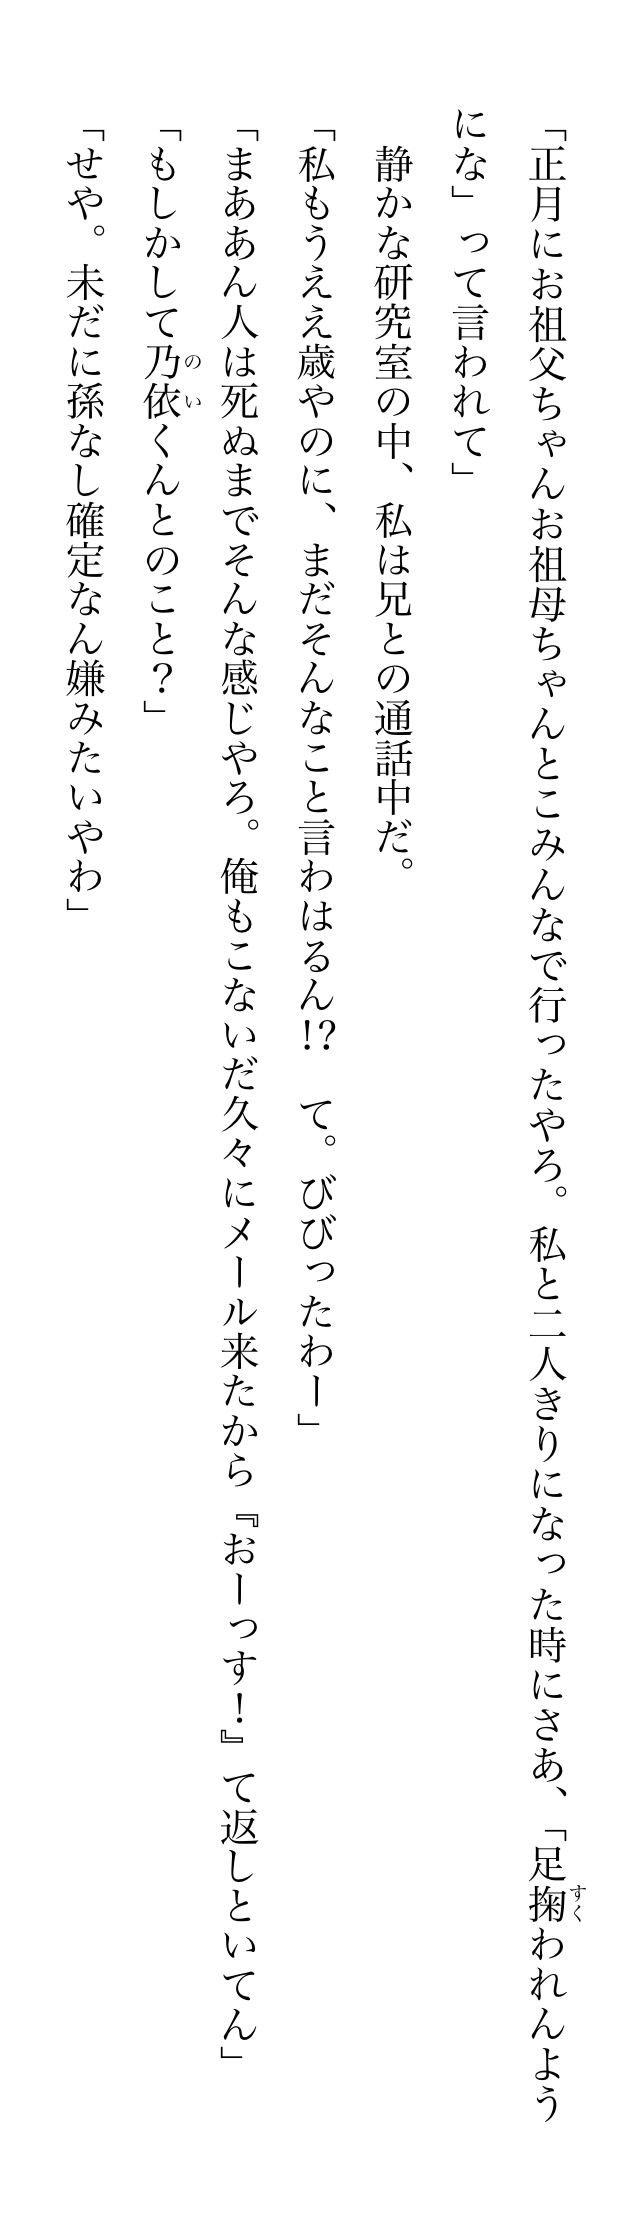 「正月にお祖父ちゃんお祖母ちゃんとこみんなで行ったやろ。私と二人きりになった時にさあ、「足掬われんよう
にな」って言われて」
　静かな研究室の中、私は兄との通話中だ。
「私もうええ歳やのに、まだそんなこと言わはるん!?　て。びびったわー」
「まああん人は死ぬまでそんな感じやろ。俺もこないだ久々にメール来たから『おーっす！』て返しといてん」
「もしかして乃依くんとのこと？」
「せや。未だに孫なし確定なん嫌みたいやわ」